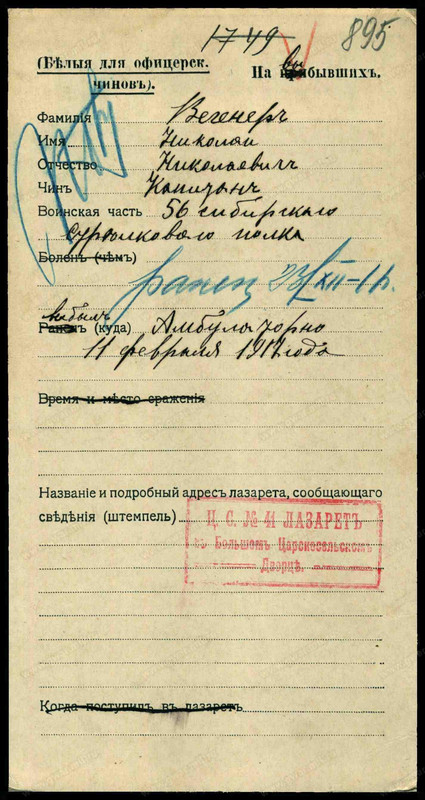 1749
895
(Бѣлыя для офицерск.
чиновъ).
На выбывшихъ.
Фамилія Вегенеръ
Имя Николай
Отчество Николаевичъ
Чинъ Капитанъ
Воинская часть 56 сибирскаго
стрѣлковаго полка
Боленъ (чѣмъ)
ранен 23/XII-16.
выбылъ
Раненъ (куда) Амбулаторно
11 февраля 1917 года
Время и мѣсто сраженія
Названіе и подробный адресъ лазарета, сообщающаго
свѣдѣнія (штемпель)
Ц. С. № 41 ЛАЗАРЕТЪ
въ Большомъ Царскосельскомъ
Дворцѣ.
Когда поступилъ въ лазаретъ